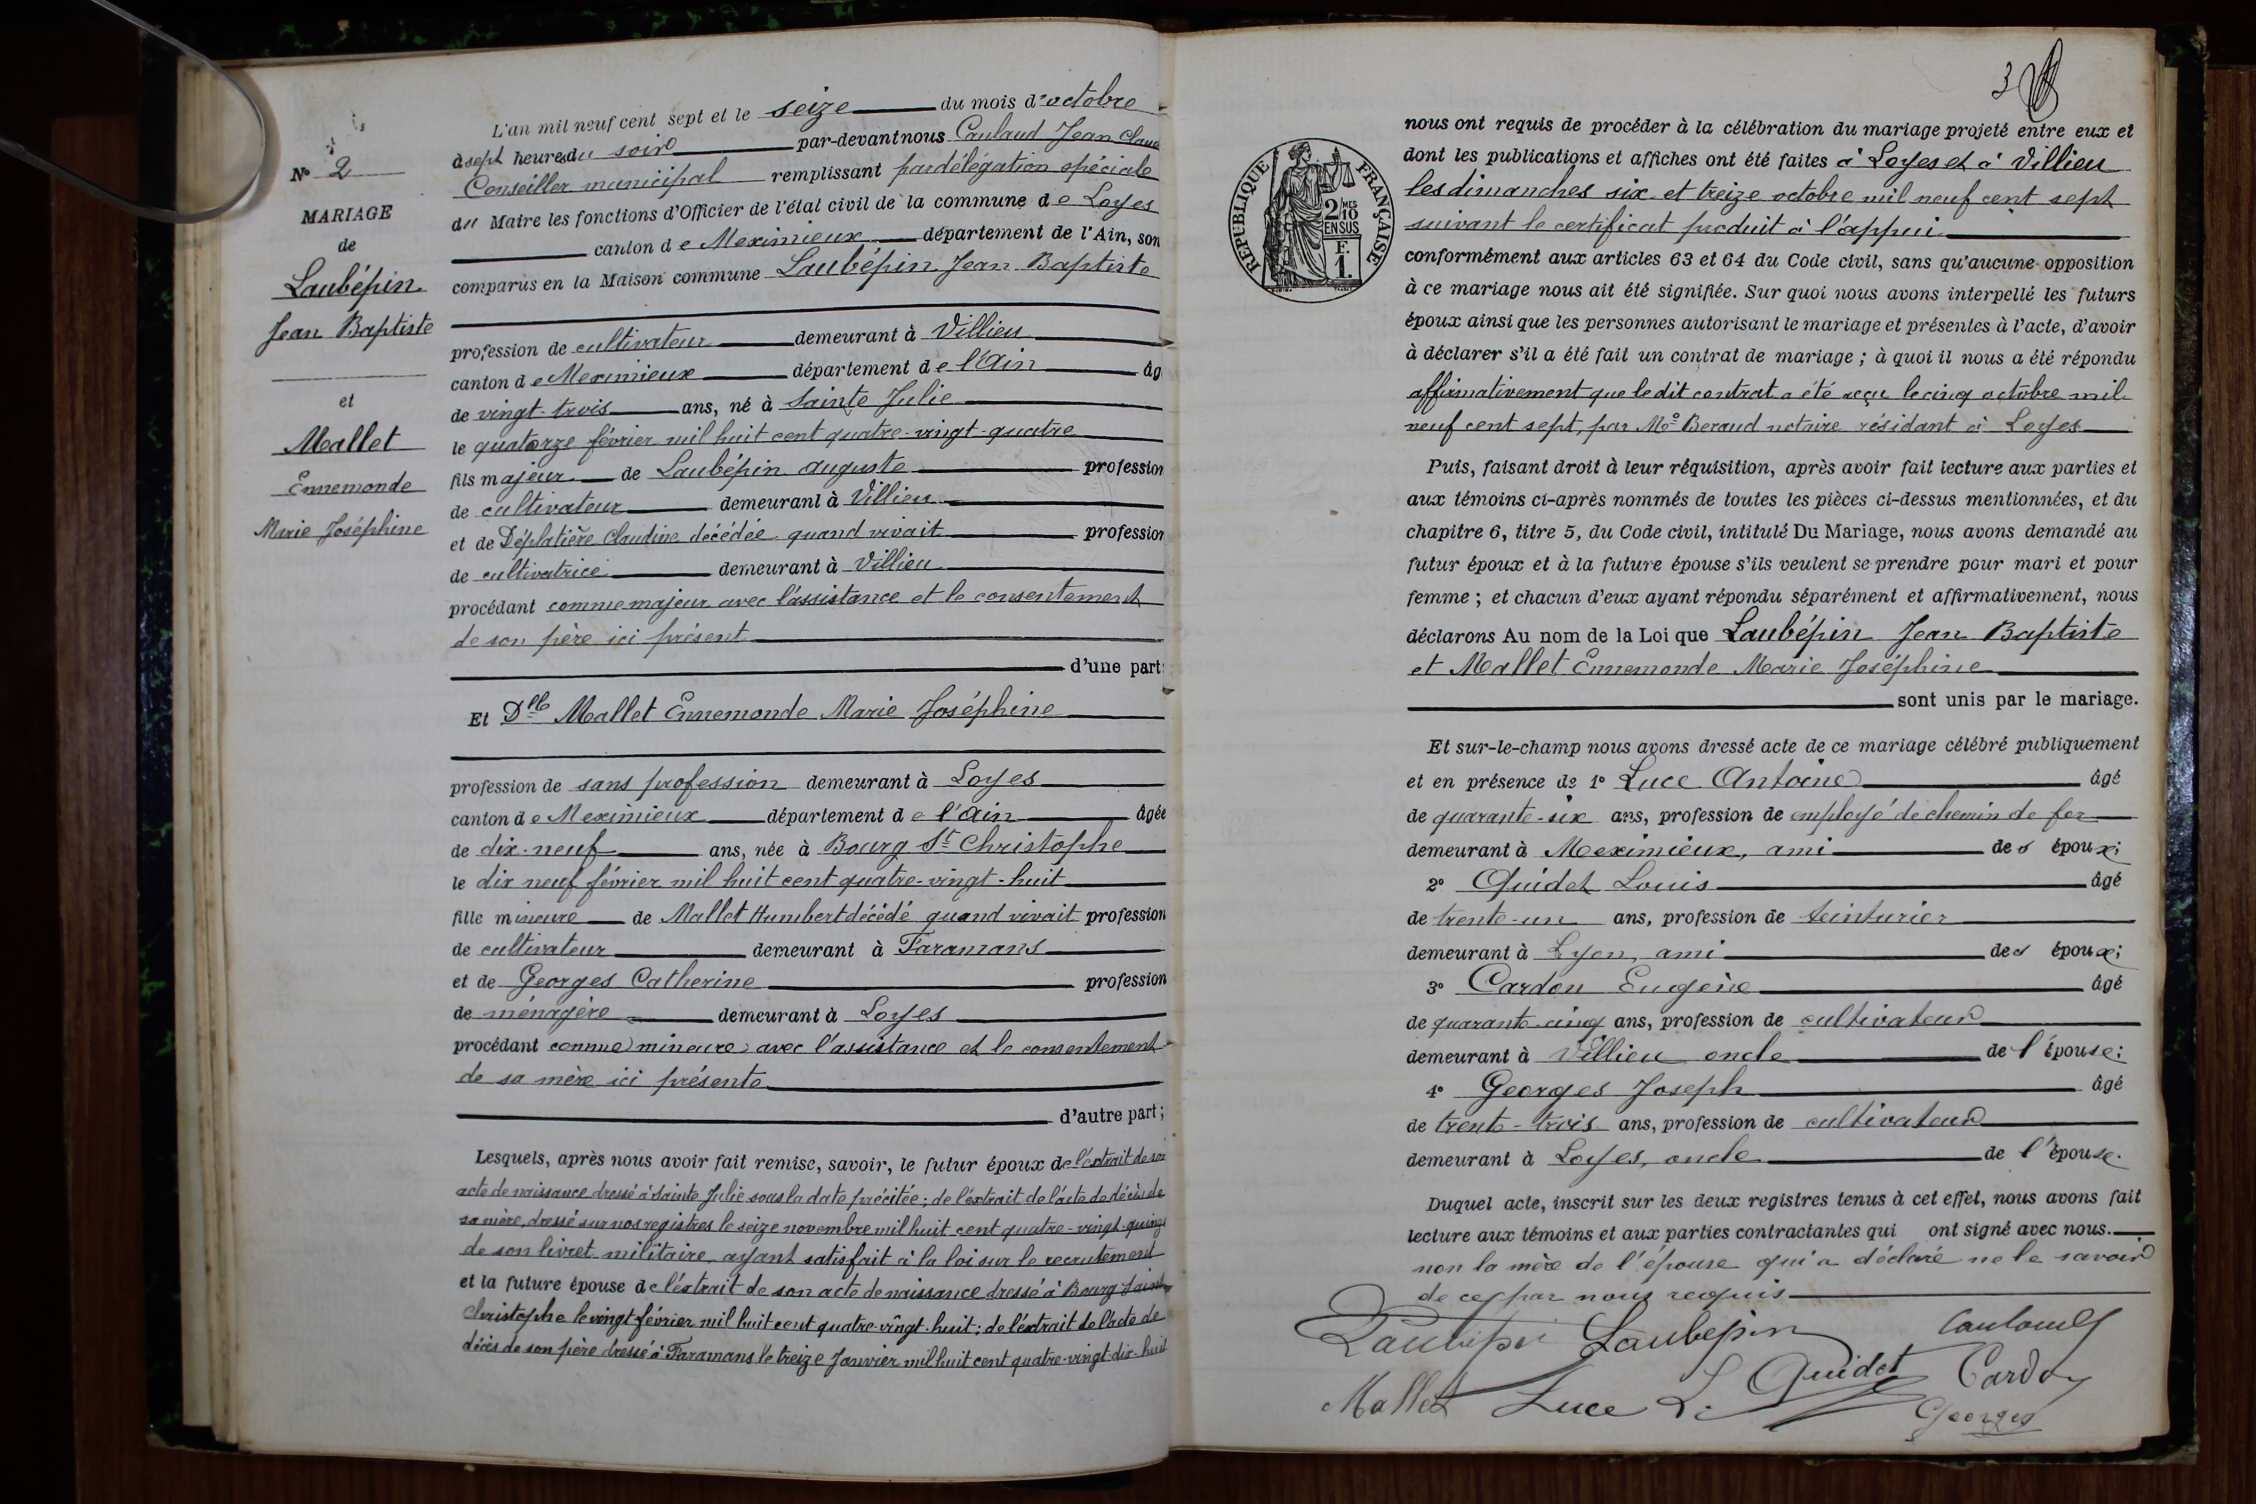 N° 2
MARIAGE
de
Laubépin
Jean Baptiste
et
Mallet
Ennemonde
Marie Joséphine
L'an mil neuf cent sept et le seize du mois d'octobre
à sept heures du soir par-devant nous Caulaud Jean Claude
Conseiller municipal remplissant par délégation spéciale
du Maire les fonctions d'Officier de l'état civil de la commune de Loyes
canton de Meximieux département de l'Ain, son
comparus en la Maison commune Laubépin Jean Baptiste
profession de cultivateur demeurant à Villieu
canton de Meximieux département de l'Ain âg
de vingt-trois ans, né à Sainte Julie
le quatorze février mil huit cent quatre-vingt-quatre
fils majeur de Laubépin Auguste profession
de cultivateur demeurant à Villieu
et de Déplatière Claudine décédée quand vivait profession
de cultivatrice demeurant à Villieu
procédant comme majeur avec l'assistance et le consentement
de son père ici présent
d'une part;
Et Dlle Mallet Ennemonde Marie Joséphine
profession de sans profession demeurant à Loyes
canton de Meximieux département de l'Ain âgée
de dix-neuf ans, née à Bourg St Christophe
le dix neuf février mil huit cent quatre-vingt-huit
fille mineure de Mallet Humbert décédé quand vivait profession
de cultivateur demeurant à Faramans
et de Georges Catherine profession
de ménagère demeurant à Loyes
procédant comme mineure avec l'assistance et le consentement
de sa mère ici présente
d'autre part;
Lesquels, après nous avoir fait remise, savoir, le futur époux de l'extrait de son
acte de naissance dressé à Sainte Julie sous la date précitée; de l'extrait de l'acte de décès de
sa mère, dressé sur nos registres le seize novembre mil huit cent quatre-vingt-quinze
de son livret militaire ayant satisfait à la loi sur le recrutement
et la future épouse de l'extrait de son acte de naissance dressé à Bourg Saint
Christophe le vingt février mil huit cent quatre-vingt-huit; de l'extrait de l'acte de
décès de son père dressé à Faramans le treize Janvier mil huit cent quatre-vingt-dix-huit
3
RÉPUBLIQUE FRANÇAISE
2/10 MES
EN SUS
F.
1.
nous ont requis de procéder à la célébration du mariage projeté entre eux et
dont les publications et affiches ont été faites à Loyes et à Villieu
les dimanches six et treize octobre mil neuf cent sept
suivant le certificat produit à l'appui
conformément aux articles 63 et 64 du Code civil, sans qu'aucune opposition
à ce mariage nous ait été signifiée. Sur quoi nous avons interpellé les futurs
époux ainsi que les personnes autorisant le mariage et présentes à l'acte, d'avoir
à déclarer s'il a été fait un contrat de mariage; à quoi il nous a été répondu
affirmativement que le dit contrat a été reçu le cinq octobre mil
neuf cent sept, par Me Beraud notaire résidant à Loyes
Puis, faisant droit à leur réquisition, après avoir fait lecture aux parties et
aux témoins ci-après nommés de toutes les pièces ci-dessus mentionnées, et du
chapitre 6, titre 5, du Code civil, intitulé Du Mariage, nous avons demandé au
futur époux et à la future épouse s'ils veulent se prendre pour mari et pour
femme; et chacun d'eux ayant répondu séparément et affirmativement, nous
déclarons Au nom de la Loi que Laubépin Jean Baptiste
et Mallet Ennemonde Marie Joséphine
sont unis par le mariage.
Et sur-le-champ nous avons dressé acte de ce mariage célébré publiquement
et en présence de 1° Luce Antoine âgé
de quarante-six ans, profession de employé de chemin de fer
demeurant à Meximieux, ami des époux;
2° Guidet Louis âgé
de trente-un ans, profession de teinturier
demeurant à Lyon, ami des époux;
3° Cardon Eugène âgé
de quarante-cinq ans, profession de cultivateur
demeurant à Villieu oncle de l'épouse;
4° Georges Joseph âgé
de trente-trois ans, profession de cultivateur
demeurant à Loyes, oncle de l'épouse.
Duquel acte, inscrit sur les deux registres tenus à cet effet, nous avons fait
lecture aux témoins et aux parties contractantes qui ont signé avec nous.
non la mère de l'épouse qui a déclaré ne le savoir
de ce par nous requis
Laubépin Laubépin Caulaud
Mallet Luce L. Guidet Cardon
Georges